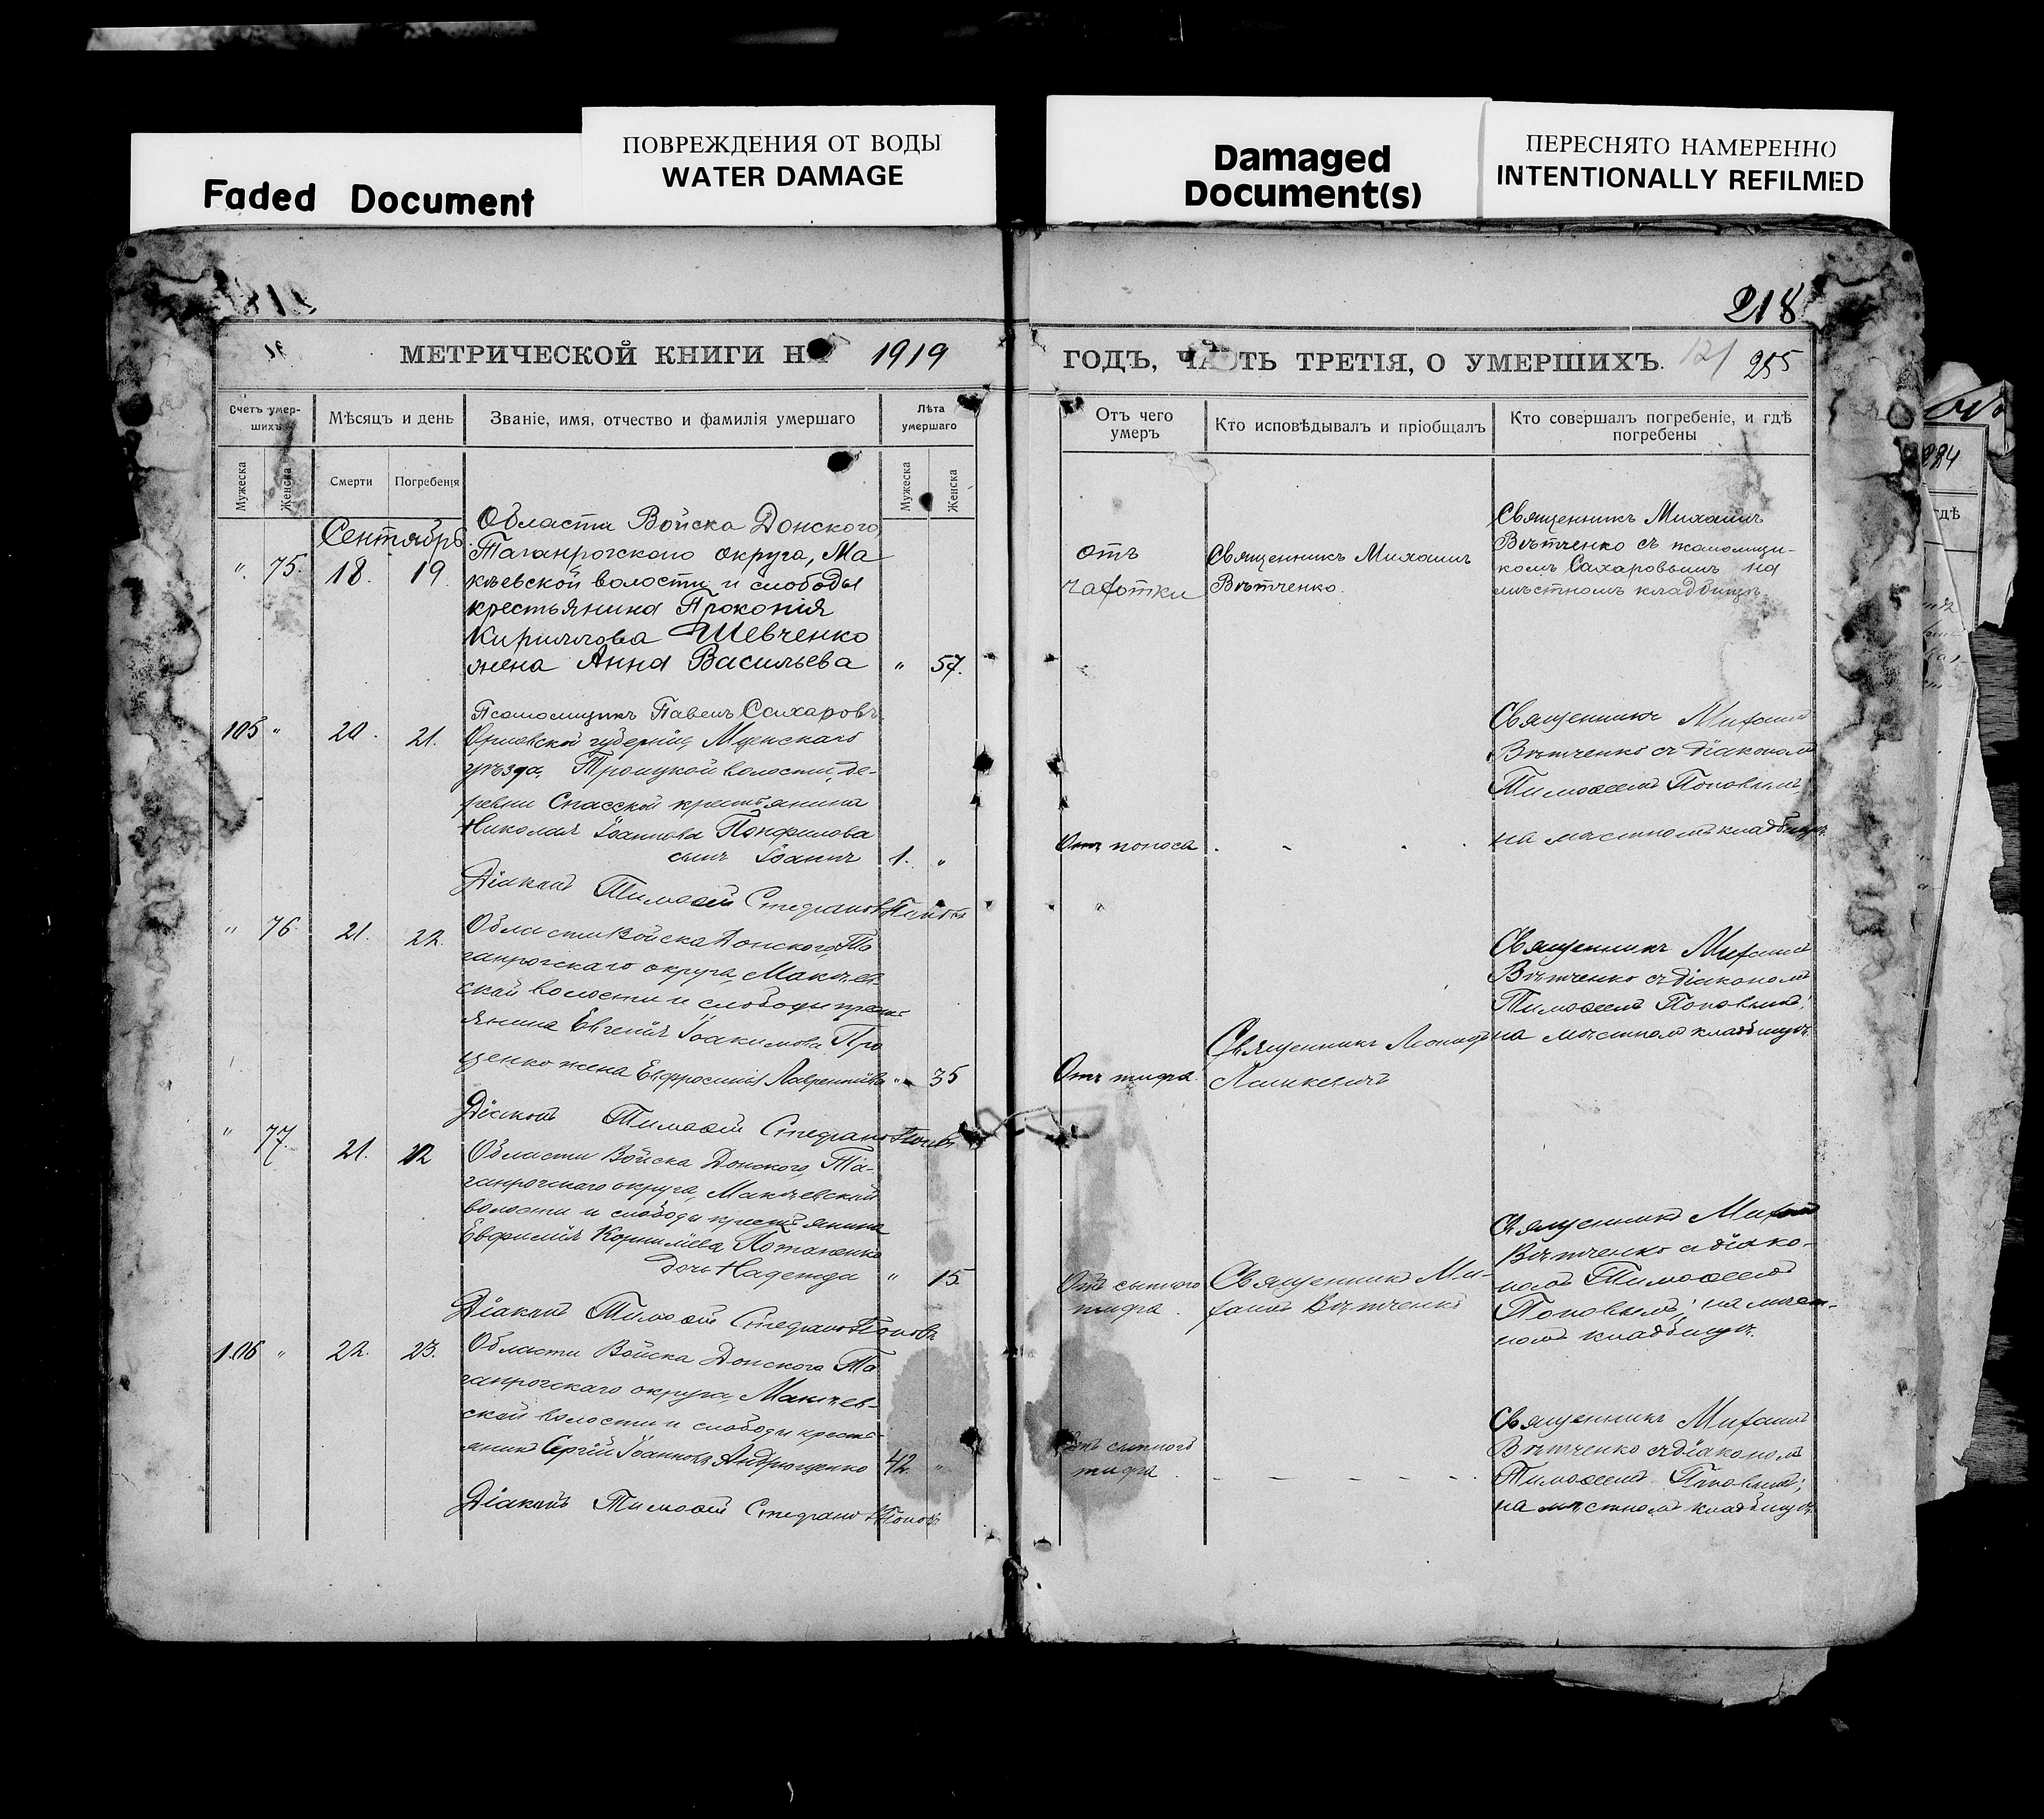 ПОВРЕЖДЕНИЯ ОТ ВОДЫ
WATER DAMAGE
Faded Document
Damaged
Document(s)
ПЕРЕСНЯТО НАМЕРЕННО
INTENTIONALLY REFILMED
218
МЕТРИЧЕСКОЙ КНИГИ Н 1919
ГОДЪ, ЧАСТЬ ТРЕТІЯ, О УМЕРШИХЪ. 121 255
Счетъ умер-
шихъ
Мѣсяцъ и день
Званіе, имя, отчество и фамилія умершаго
Лѣта
умершаго
Мужеска
Женска
Смерти
Погребенія
Мужеска
Женска
Отъ чего
умеръ
Кто исповѣдывалъ и пріобщалъ
Кто совершалъ погребеніе, и гдѣ
погребены
Сентябрь
" 75. 18. 19.
Области Войска Донского
Таганрогского округа, Ма
кѣевской волости и слободы
крестьянина Прокопія
Кириллова Шевченко
жена Анна Васильева " 57.
отъ
чахотки
Священникъ Михаилъ
Вѣтченко.
Священникъ Михаилъ
Вѣтченко съ псаломщи-
комъ Сахаровымъ на
мѣстномъ кладбищѣ.
Псаломщикъ Павелъ Сахаровъ.
105 " 20. 21.
Орловской губерніи, Мценскаго
уѣзда, Троицкой волости, де-
ревни Спасской крестьянина
Николая Іоаннова Панфилова
сынъ Іоаннъ 1. "
Отъ поноса
Священникъ Михаилъ
Вѣтченко съ діакономъ
Тимофеемъ Поповымъ,
на мѣстномъ кладбищѣ.
Діаконъ Тимофей Стефановъ Поповъ
" 76. 21. 22.
Области Войска Донского, Та
ганрогскаго округа, Макѣев-
ской волости и слободы кресть-
янина Евгенія Іоакимова Про
ценко жена Евфросинія Лаврентіева " 35
Отъ тифа.
Священникъ Леонидъ
Священникъ Михаилъ
Вѣтченко съ діакономъ
Тимофеемъ Поповымъ;
на мѣстномъ кладбищѣ.
Діаконъ Тимофей Стефановъ Поповъ
" 77. 21. 22
Области Войска Донского, Та-
ганрогскаго округа, Макѣевской
волости и слободы крестьянина
Евфимія Корниліева Потапенко
дочь Надежда " 15.
Отъ сыпного
тифа.
Священникъ Ми-
хаилъ Вѣтченко
Священникъ Михаилъ
Вѣтченко съ діако-
номъ Тимофеемъ
Поповымъ; на мѣст-
номъ кладбищѣ.
Діаконъ Тимофей Стефановъ Поповъ
106 " 22. 23.
Области Войска Донского Та
ганрогскаго округа, Макѣев-
ской волости и слободы кресть-
янинъ Сергій Іоанновъ Андрющенко 42. "
Отъ сыпного
тифа.
Священникъ Михаилъ
Вѣтченко съ діакономъ
Тимофеемъ Поповымъ;
на мѣстномъ кладбищѣ.
Діаконъ Тимофей Стефановъ Поповъ